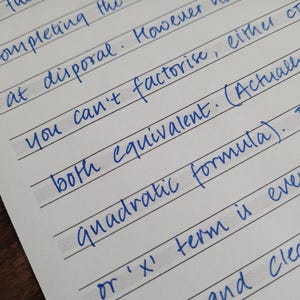 completing the
at disposal. However
you can't factorise, either
both equivalent. (Actually
quadratic formula).
or 'x' term is even
and